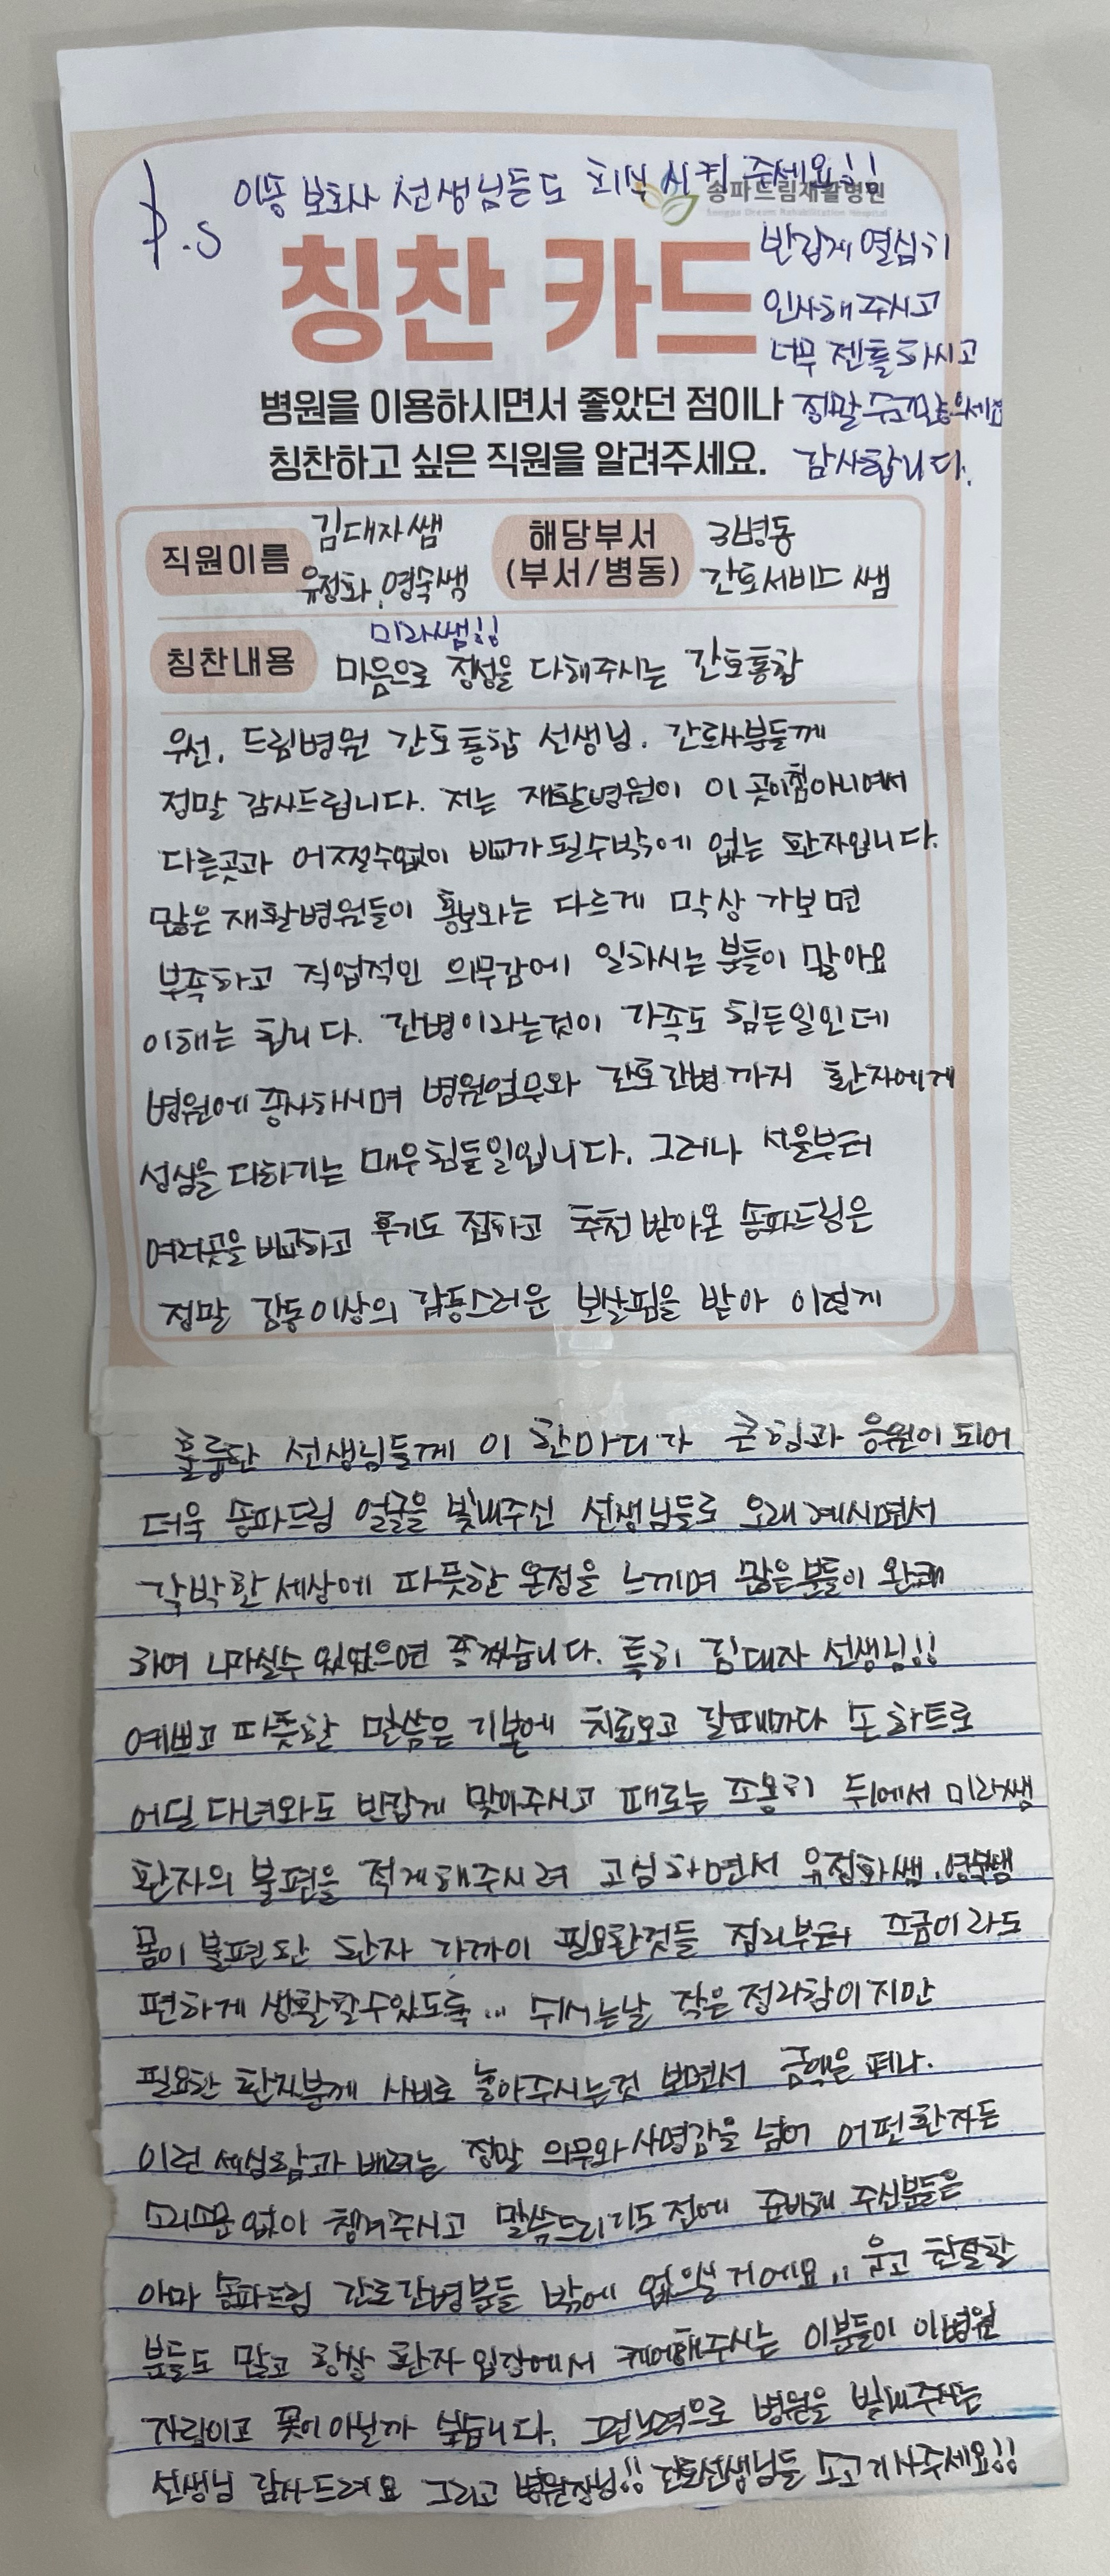 P.S 이동 보호사 선생님들도 회식 시켜 주세요!!
송파드림재활병원
Songpa Dream Rehabilitation Hospital
칭찬 카드
반갑게 열심히
인사해 주시고
너무 젠틀하시고
정말 수고많으세요
감사합니다.
병원을 이용하시면서 좋았던 점이나
칭찬하고 싶은 직원을 알려주세요.
직원이름 김대자쌤
유정화, 영숙쌤
미라쌤!!
해당부서
(부서/병동)
3병동
간호서비스 쌤
칭찬내용 마음으로 정성을 다해주시는 간호통합
우선, 드림병원 간호통합 선생님, 간호사분들께
정말 감사드립니다. 저는 재활병원이 이 곳이첨아니여서
다른곳과 어쩔수없이 비교가 될수밖에 없는 환자입니다.
많은 재활병원들이 홍보와는 다르게 막상 가보면
부족하고 직업적인 의무감에 일하시는 분들이 많아요
이해는 합니다. 간병이라는것이 가족도 힘든일인데
병원에 종사하시며 병원업무와 간호간병까지 환자에게
성심을 다하기는 매우힘든일입니다. 그러나 서울부터
여러곳을 비교하고 후기도 접하고 추천 받아온 송파드림은
정말 감동이상의 감동스러운 보살핌을 받아 이렇게
훌륭한 선생님들께 이 한마디가 큰힘과 응원이 되어
더욱 송파드림 얼굴을 빛내주신 선생님들로 오래 계시면서
각박한 세상에 따뜻한 온정을 느끼며 많은분들이 완쾌
하여 나가실수 있었으면 좋겠습니다. 특히 김대자 선생님!!
예쁘고 따뜻한 말씀은 기본에 치료오고 갈때마다 손하트로
어딜 다녀와도 반갑게 맞아주시고 때로는 조용히 뒤에서 미라쌤
환자의 불편을 적게해주시려 고심하면서 유정화쌤, 영숙쌤
몸이 불편한 환자 가까이 필요한것들 정리부터 조금이라도
편하게 생활할수있도록... 쉬시는날 작은 정리함이지만
필요한 환자분께 사비로 놓아주시는것 보면서 금액은 떠나.
이런 세심함과 배려는 정말 의무와 사명감을 넘어 어떤환자든
소리소문 없이 챙겨주시고 말씀드리기도 전에 준비해 주신분들은
아마 송파드림 간호간병분들 밖에 없으실 거에요,, 웃고 친절한
분들도 많고 항상 환자 입장에서 케어해주시는 이분들이 이병원
자랑이고 꽃이 아닐까 싶습니다. 그런노력으로 병원을 빛내주시는
선생님 감사드려요 그리고 병원장님!! 간호선생님들 소고기사주세요!!